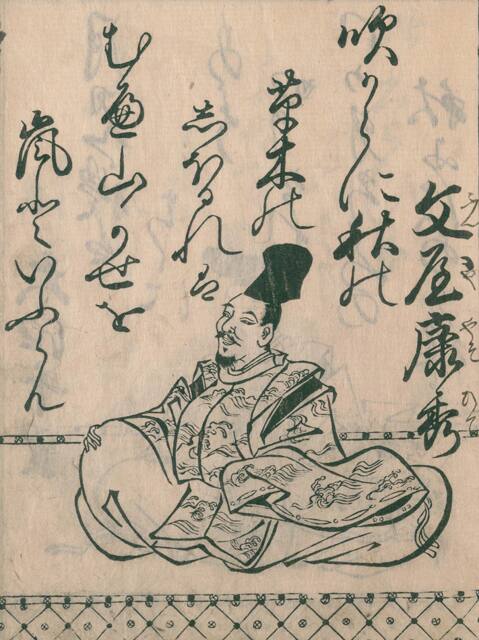 文屋康秀
ふんややすひで
吹からに秋の
草木の
しほるれは
むべ山かせを
嵐といふらん